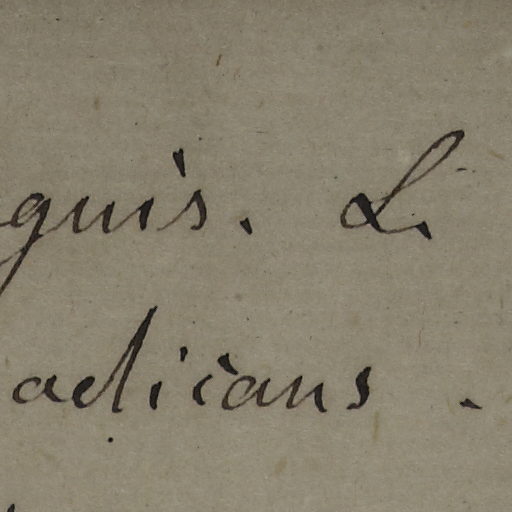 guis. L.
adicans.